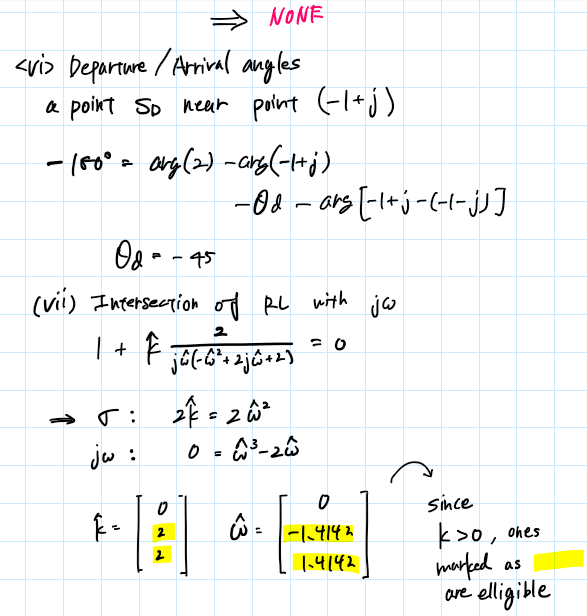 ⇒ NONE
<vi> Departure / Arrival angles
a point S_D near point (-1+j)
-180° = arg(2) - arg(-1+j)
-θd - arg[-1+j-(-1-j)]
θd = -45
(vii) Intersection of RL with jω
1 + k̂ 2/(jω̂(-ω̂²+2jω̂+2)) = 0
⇒ σ : 2k̂ = 2ω̂²
jω : 0 = ω̂³-2ω̂
k̂ = [0 2 2] ω̂ = [0 -1.4142 1.4142]
since
k>0, ones
marked as
are elligible